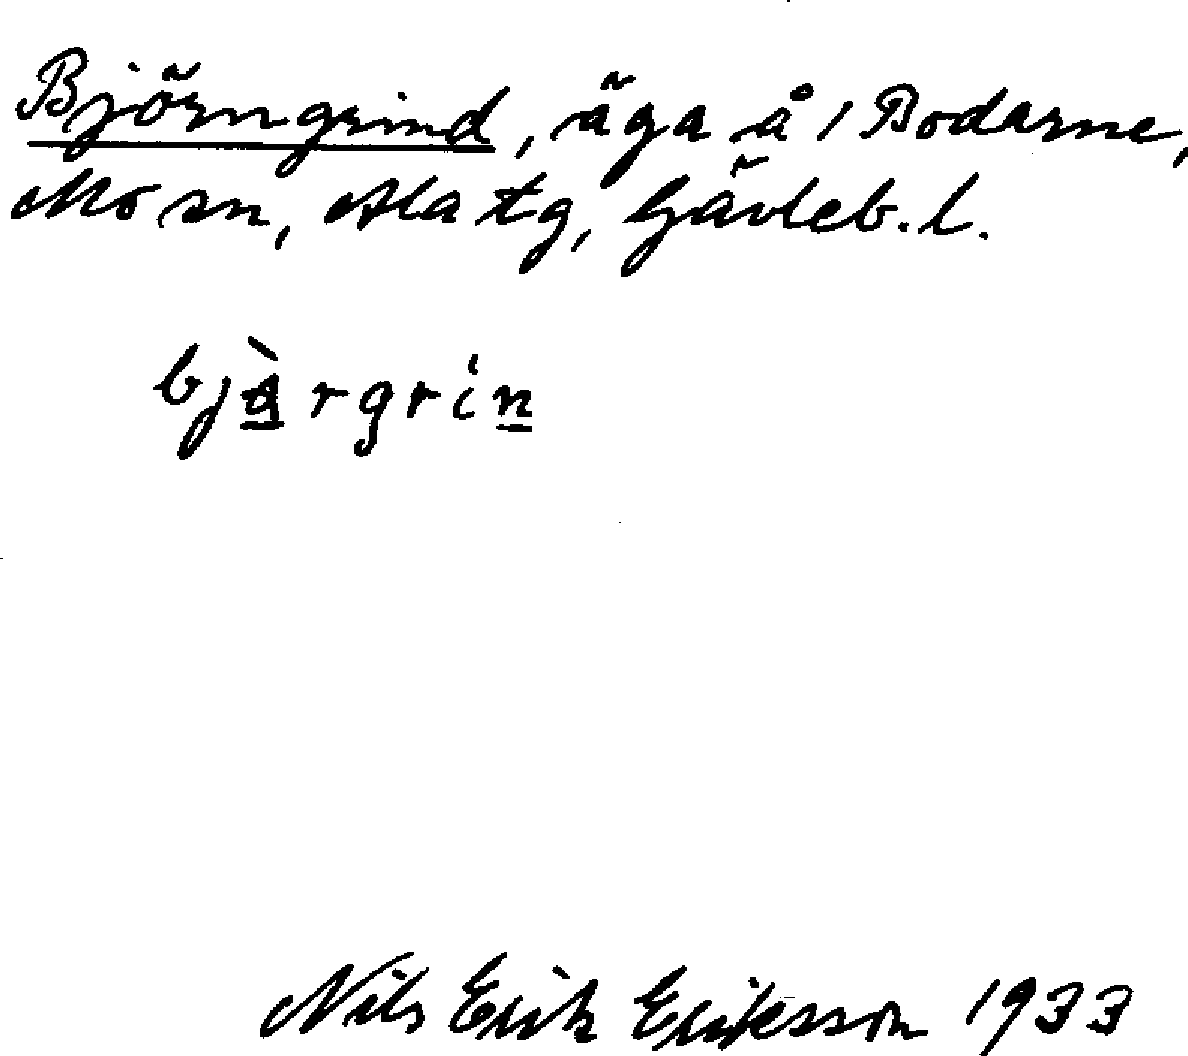 Björngrind, äga å 1 Bodarne,
Mo sn, Ala tg, Gävleb. l.
bjàrgrin
Nils Erik Eriksson 1933